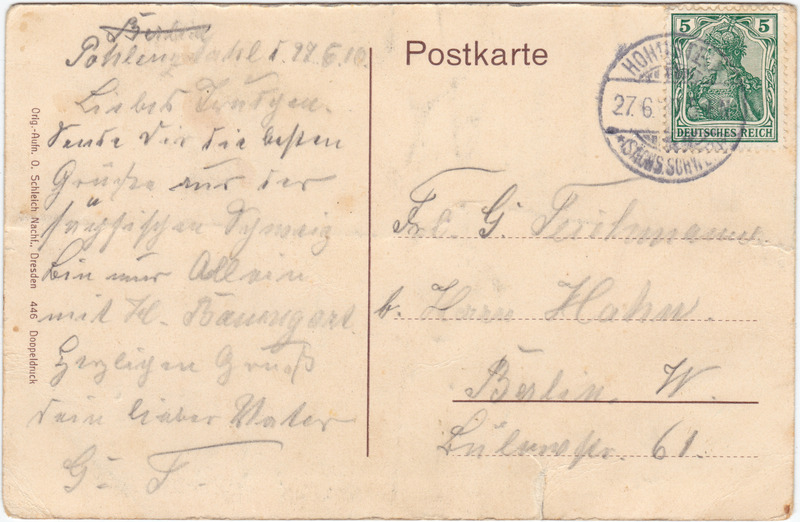 Berlin
Pohlenzthal d. 27.6.10
Liebes Trudchen.
Sende Dir die besten
Grüße aus der
sächsischen Schweiz
bin nur Allein
mit H. Baumgart
Herzlichen Gruß
dein lieber Vater
G. T.
Orig.-Aufn. O. Schleich Nachf., Dresden 446 Doppeldruck
Postkarte
5 5
DEUTSCHES REICH
27.6.
(SÄCHS. SCHW
Frl. G. Teichmann
b. Herrn Hahn.
Berlin. W.
Bülowstr. 61.